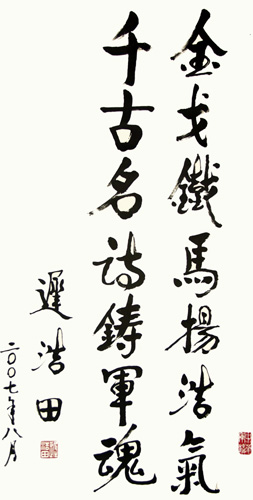 金戈鐵馬揚浩氣
千古名詩鑄軍魂
遲浩田
二〇〇七年八月